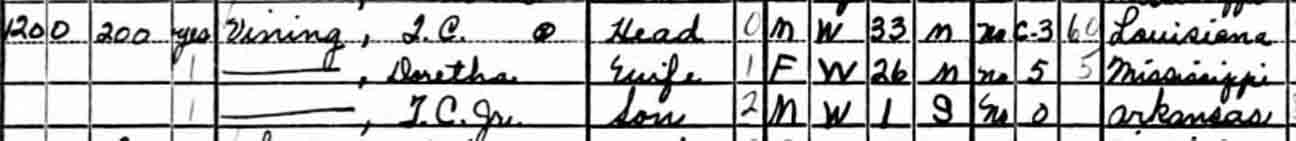 1200 200 yes Vining, T.C. Head 0 M W 33 M No C-3 60 Louisiana
1 ——, Doretha Wife 1 F W 26 M No 5 5 Mississippi
1 ——, T.C. Jr. Son 2 M W 1 S No 0 Arkansas